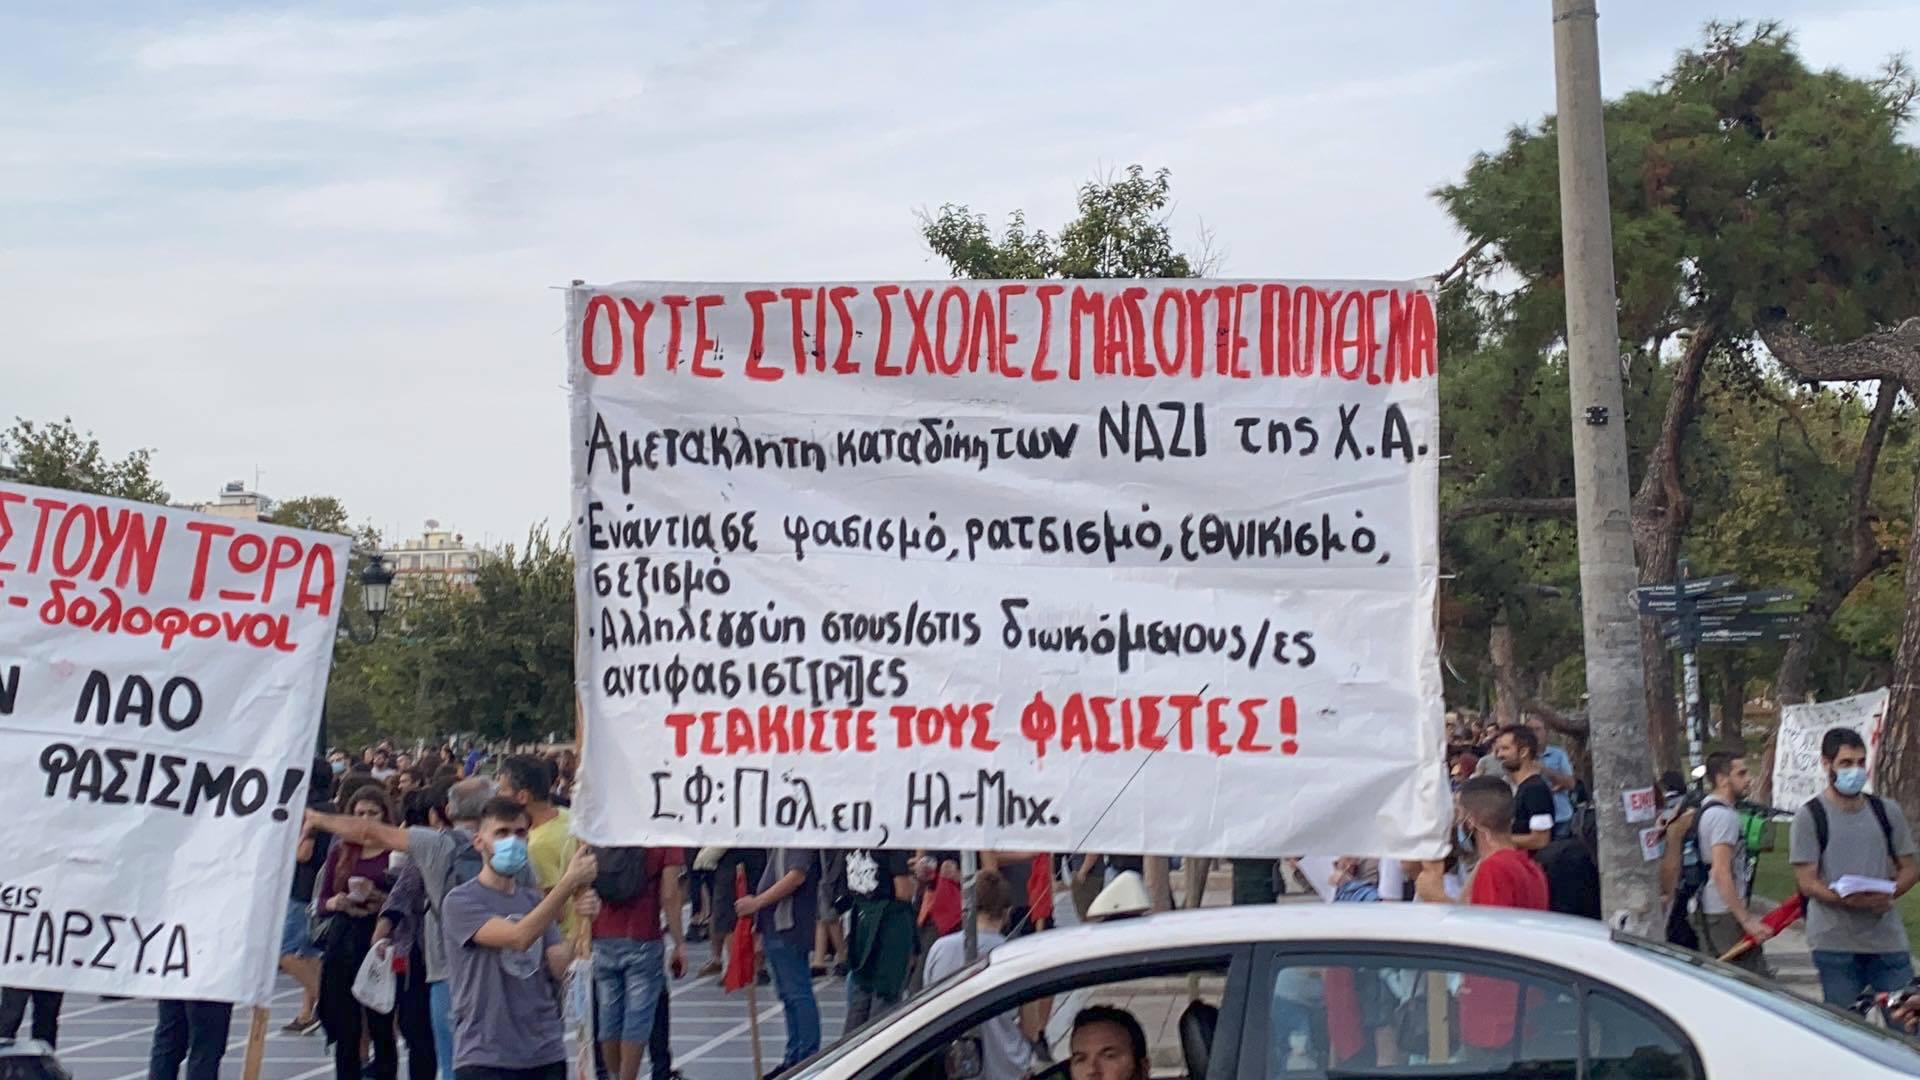 ΟΥΤΕ ΣΤΙΣ ΣΧΟΛΕΣ ΜΑΣ ΟΥΤΕ ΠΟΥΘΕΝΑ
·Αμετακλητη καταδίκη των ΝΑΖΙ της Χ.Α.
·Ενάντια σε φασισμό, ρατσισμό, εθνικισμό,
σεξισμό
·Αλληλεγγύη στους/στις διωκόμενους/ες
αντιφασιστ[ρι]ες
ΤΣΑΚΙΣΤΕ ΤΟΥΣ ΦΑΣΙΣΤΕΣ!
Σ.Φ: Πολ.επ, Ηλ.-Μηχ.
ΣΤΟΥΝ ΤΩΡΑ
- δολοφονοι
Ν ΛΑΟ
ΦΑΣΙΣΜΟ!
εις
Τ.ΑΡ.ΣΥ.Α